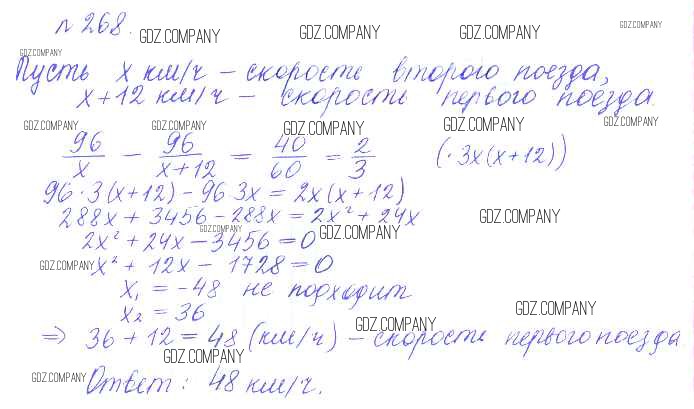 № 268.
GDZ.COMPANY GDZ.COMPANY GDZ.COMPANY GDZ.COMPANY
GDZ.COMPANY
Пусть x км/ч – скорость второго поезда,
x+12 км/ч – скорость первого поезда.
GDZ.COMPANY GDZ.COMPANY GDZ.COMPANY GDZ.COMPANY GDZ.COMPANY
96/x – 96/(x+12) = 40/60 = 2/3 (·3x(x+12))
96·3(x+12) – 96·3x = 2x(x+12)
288x + 3456 – 288x = 2x² + 24x
GDZ.COMPANY
2x² + 24x – 3456 = 0
GDZ.COMPANY GDZ.COMPANY
GDZ.COMPANY
x² + 12x – 1728 = 0
x₁ = –48 не подходит
x₂ = 36
GDZ.COMPANY
GDZ.COMPANY
⇒ 36 + 12 = 48 (км/ч) – скорость первого поезда
GDZ.COMPANY
GDZ.COMPANY
Ответ: 48 км/ч.